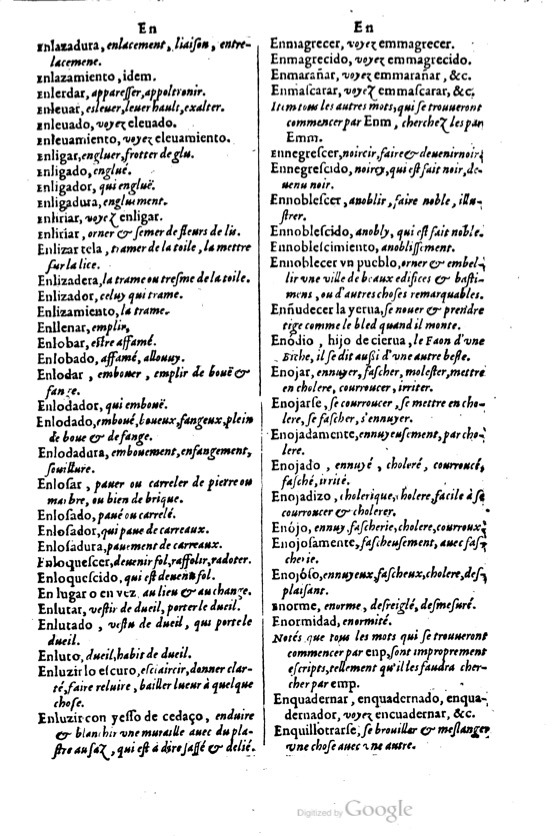 En
Enlazadura, enlacement, liaison, entre-
lacemene.
Enlazamiento, idem.
Enlerdar, apparesser, appoltronir.
Enleuar, esleuer, leuer hault, exalter.
Enleuado, voyez eleuado.
Enleuamiento, voyez eleuamiento.
Enligar, engluer, frotter de glu.
Enligado, englué.
Enligador, qui engluë.
Enligadura, engluiment.
Enliriar, voyez enligar.
Enliriar, orner & semer de fleurs de lis.
Enlizar tela, tramer de la toile, la mettre
sur la lice.
Enlizadera, la trame ou tresme de la toile.
Enlizador, celuy qui trame.
Enlizamiento, la trame.
Enllenar, emplir,
Enlobar, estre affamé.
Enlobado, affamé, allouuy.
Enlodar, embouer, emplir de bouë &
fange.
Enlodador, qui embouë.
Enlodado, emboué, boueux, fangeux, plein
de boue & de fange.
Enlodadura, embouement, enfangement,
souillure.
Enlosar, pauer ou carreler de pierre ou
marbre, ou bien de brique.
Enlosado, paué ou carrelé.
Enlosador, qui paue de carreaux.
Enlosadura, pauement de carreaux.
Enloquescer, deuenir fol, raffolir, radoter.
Enloquescido, qui est deuenu fol.
En lugar o en vez, au lieu & au change.
Enlutar, vestir de dueil, porter le dueil.
Enlutado, vestu de dueil, qui portele
dueil.
Enluto, dueil, habit de dueil.
Enluzir lo escuro, esclaircir, donner clar-
té, faire reluire, bailler lueur à quelque
chose.
Enluzir con yesso de cedaço, enduire
& blanchir vne muraille auec du pla-
stre au saz, qui est à dire sassé & delié.
En
Enmagrecer, voyez emmagrecer.
Enmagrecido, voyez emmagrecido.
Enmarañar, voyez emmarañar, &c.
Enmascarar, voyez emmascarar, &c.
Item tous les autres mots, qui se trouueront
commencer par Enm, cherchez les par
Emm.
Ennegrescer, noircir, faire & deuenir noir.
Ennegrescido, noircy, qui est fait noir, de-
uenu noir.
Ennoblescer, anoblir, faire noble, illu-
strer.
Ennoblescido, anobly, qui est fait noble.
Ennoblescimiento, anoblissement.
Ennoblecer vn pueblo, orner & embel-
lir vne ville de beaux edifices & basti-
mens, ou d'autres choses remarquables.
Enñudecer la yerua, se nouer & prendre
tige comme le bled quand il monte.
Enôdio, hijo de cierua, le Faon d'vne
Biche, il se dit aussi d'vne autre beste.
Enojar, ennuyer, fascher, molester, mettre
en cholere, courroucer, irriter.
Enojarse, se courroucer, se mettre en cho-
lere, se fascher, s'ennuyer.
Enojadamente, ennuyeusement, par cho-
lere.
Enojado, ennuyé, choleré, courroucé,
fasché, irrité.
Enojadizo, cholerique, cholere, facile à se
courroucer & cholerer.
Enójo, ennuy, fascherie, cholere, courroux.
Enojosamente, fascheusement, auec fas-
cherie.
Enojóso, ennuyeux, fascheux, cholere, des-
plaisant.
Enorme, enorme, desreiglé, desmesuré.
Enormidad, enormité.
Notés que tous les mots qui se trouueront
commencer par enp, sont improprement
escripts, tellement qu'il les faudra cher-
cher par emp.
Enquadernar, enquadernado, enqua-
dernador, voyez encuadernar, &c.
Enquillotrarse, se brouiller & meslanger
vne chose auec vne autre.
Digitized by Google